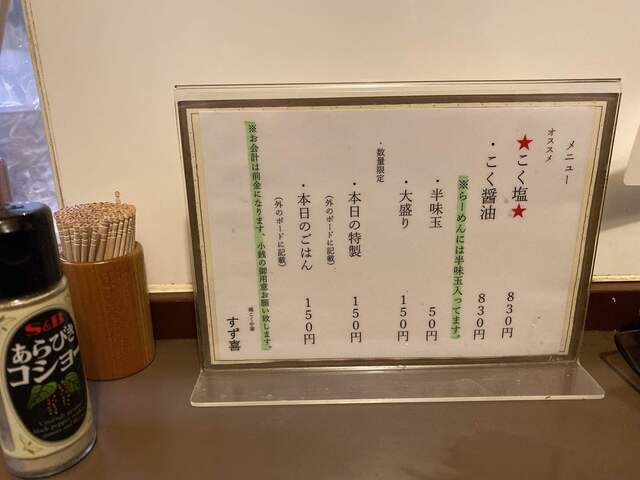 メニュー
オススメ
★こく塩★ 830円
・こく醤油 830円
※らーめんには半味玉入ってます。
・半味玉 50円
・大盛り 150円
・数量限定
・本日の特製 150円
(外のボードに記載)
・本日のごはん 150円
(外のボードに記載)
※お会計は前金になります、小銭の御用意お願い致します。
すず喜
S&B
あらびき
コショー